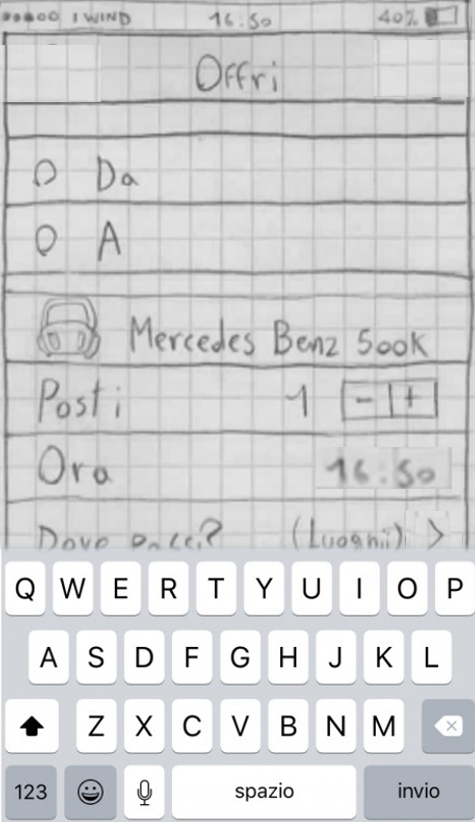 I WIND 16:50 40%
Offri
Da
A
Mercedes Benz 500K
Posti 1 - +
Ora 16:50
Dove passi? (Luoghi) >
Q W E R T Y U I O P
A S D F G H J K L
Z X C V B N M
123 spazio invio